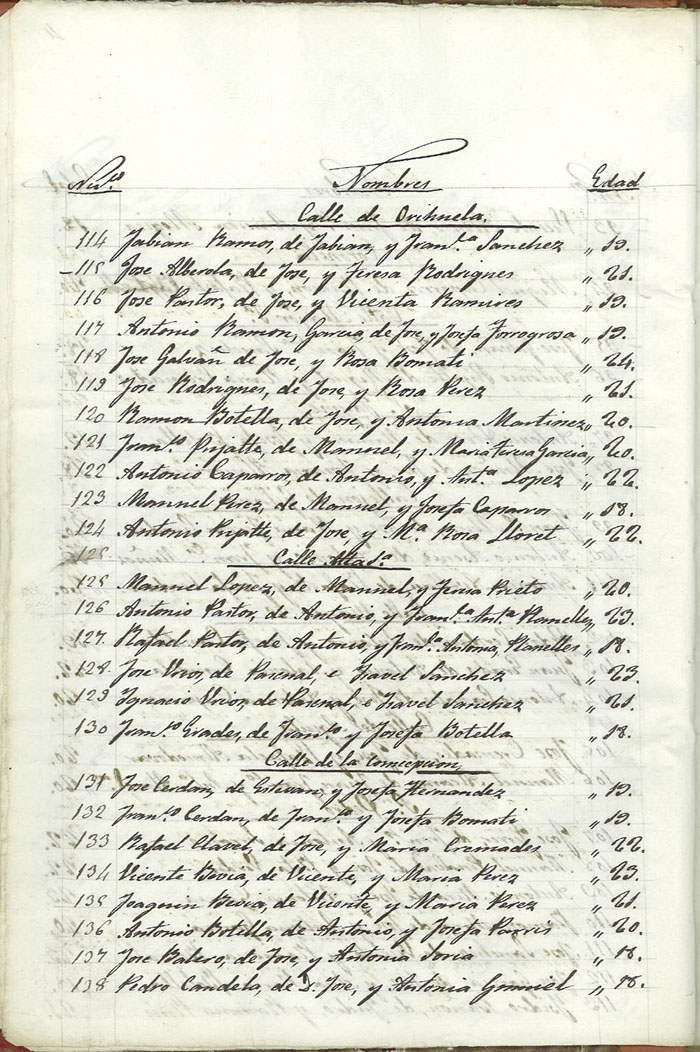 Num.s Nombres Edad
Calle de Orihuela.
114 Fabian Ramos, de Fabian, y Fran.ca Sanchez „ 19.
115 Jose Alberola, de Jose, y Teresa Rodrigues „ 21.
116 Jose Pastor, de Jose, y Vicenta Ramires „ 19.
117 Antonio Ramon, Garcia, de Jose, y Josefa Torrogrosa „ 19.
118 Jose Galvañ de Jose, y Rosa Bomati „ 24.
119 Jose Rodrigues, de Jose, y Rosa Perez „ 21.
120 Ramon Botella, de Jose, y Antonia Martinez „ 20.
121 Fran.co Pujalte, de Manuel, y Maria Teresa Garcia „ 20.
122 Antonio Caparros, de Antonio, y Ant.a Lopez „ 22.
123 Manuel Perez, de Manuel, y Josefa Caparros „ 18.
124 Antonio Pujalte, de Jose, y M.a Rosa Lloret „ 22.
125 Calle Alta
125 Manuel Lopez, de Manuel, y Prieto „ 20.
126 Antonio Pastor, de Antonio, y Fran.ca Ant.a Planelles „ 23.
127 Rafael Pastor, de Antonio, y Fran.ca Antonia, Planelles „ 18.
128 Jose de Pascual, e Isavel Sanchez „ 23
129 Ignacio de Pascual, e Isavel Sanchez „ 21.
130 Fran.co de Fran.co y Josefa Botella „ 18.
Calle de la Concepcion,
131 Jose Cerdan, de Estevan, y Josefa Hernandez „ 19.
132 Fran.co Cerdan, de Fran.co y Josefa Bomati „ 19.
133 Rafael Clavel, de Jose, y Maria Cremades „ 22.
134 Vicente Bevia, de Vicente, y Maria Perez „ 23.
135 Joaquin Bevia, de Vicente, y Maria Perez „ 21.
136 Antonio Botella, de Antonio, y Josefa „ 20.
137 Jose Balero, de Jose, y Antonia Soria „ 18.
138 Pedro Candela, de D. Jose, y Antonia „ 18.